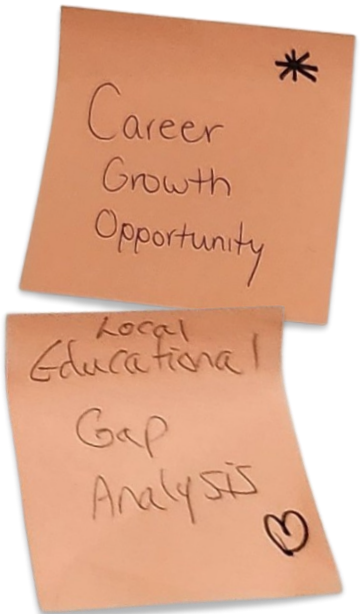 *
Career
Growth
Opportunity
Local
Educational
Gap
Analysis